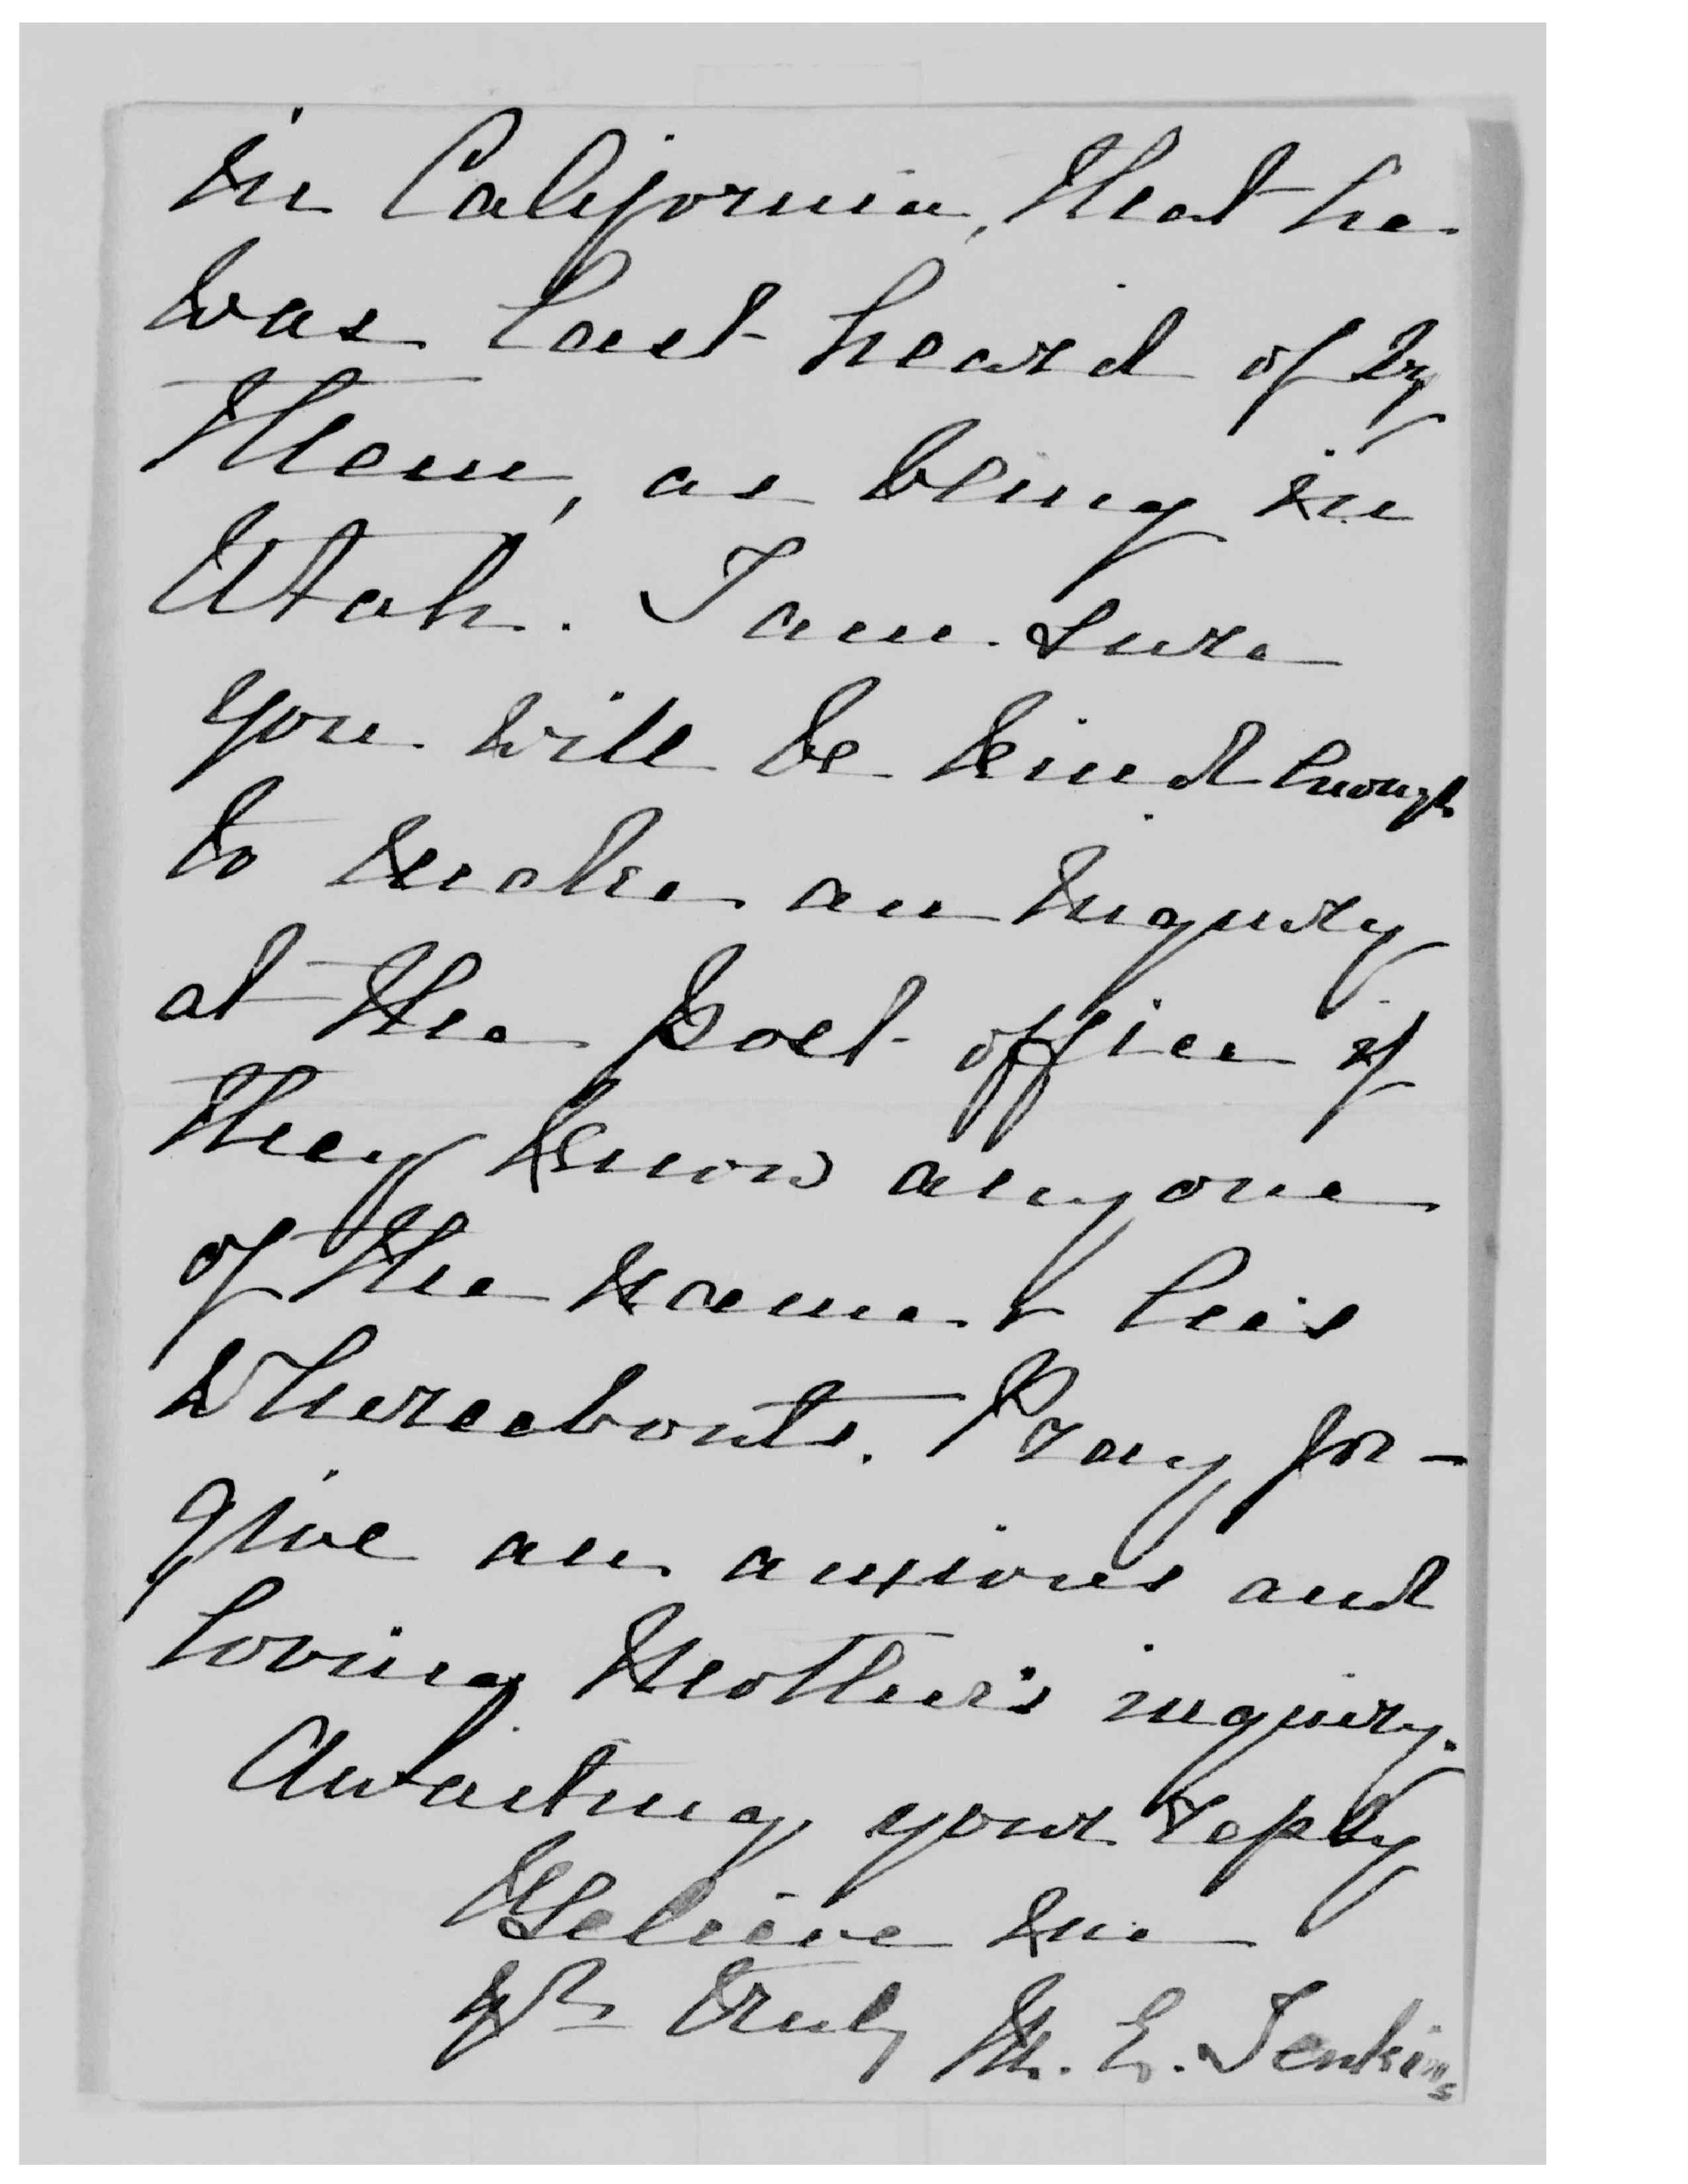 in California, that he
was last heard of by
them, as being in
Utah. I am sure
you will be kind enough
to make an inquiry
at the post office if
they know anyone
of the name & his
whereabouts. Pray for-
give an anxious and
loving Mother's inquiry.
Awaiting your reply
Believe me
Yrs truly M. E. Jenkins